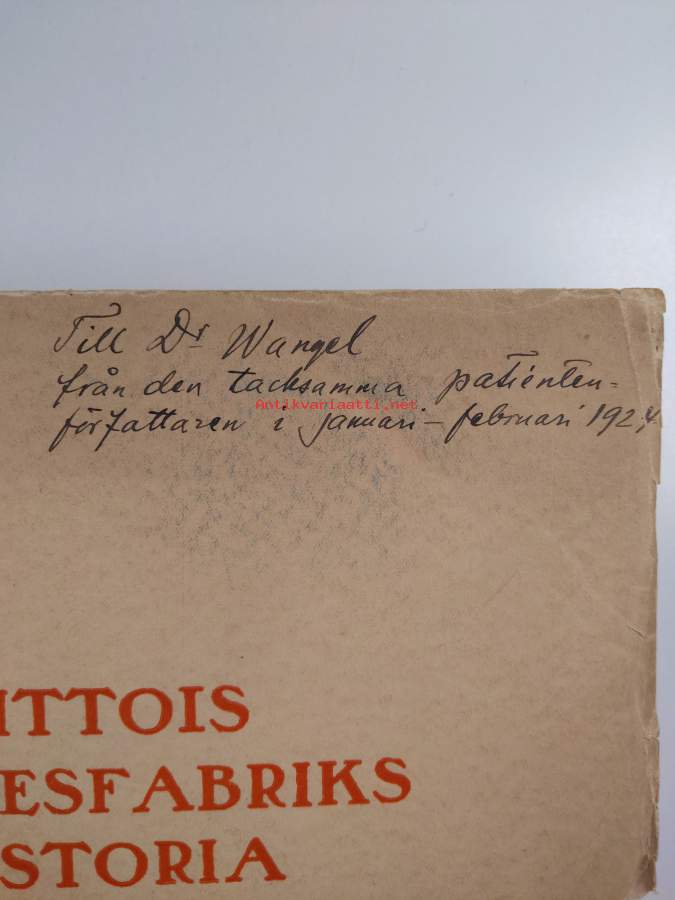 Till Dr Wangel
från den tacksamma patienten-
författaren i januari – februari 1924.
Antikvariaatti.net
ITTOIS
ESFABRIKS
STORIA